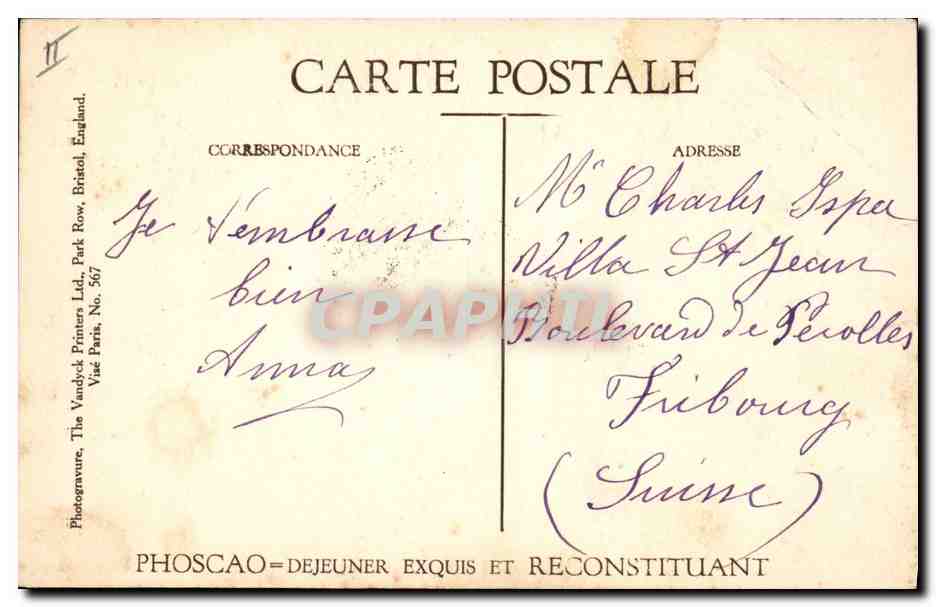 II
CARTE POSTALE
CORRESPONDANCE
ADRESSE
Je t'embrasse
bien
Anna
Mr Charles Ispa
Villa St Jean
Boulevard de Pérolles
Fribourg
(Suisse)
Photogravure, The Vandyck Printers Ltd., Park Row, Bristol, England.
Visé Paris, No. 567
CPAPHIL
PHOSCAO=DEJEUNER EXQUIS ET RECONSTITUANT